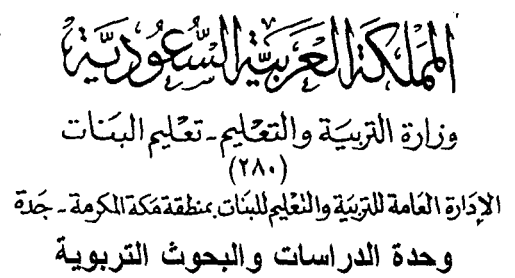 المملكة العربية السعودية
وزارة التربية والتعليم - تعليم البنات
(٢٨٠)
الإدارة العامة للتربية والتعليم للبنات بمنطقة مكة المكرمة - جدة
وحدة الدراسات والبحوث التربوية